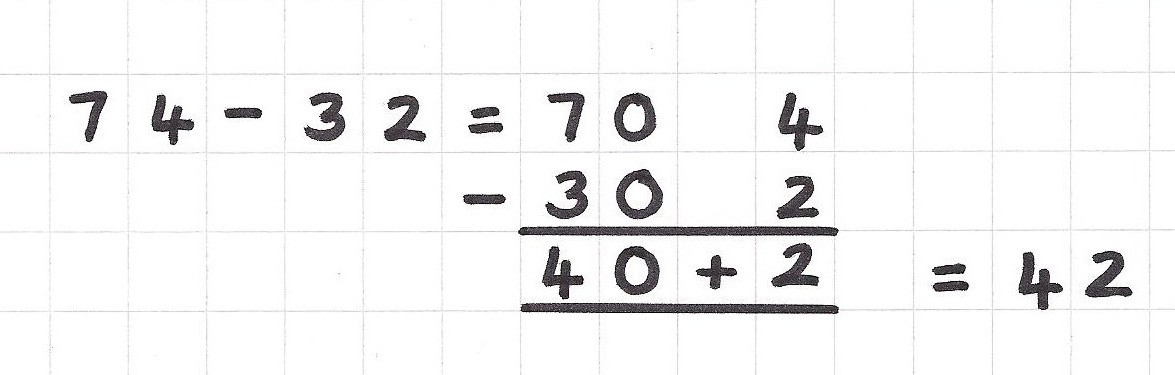 74-32=70 4
-30 2
40+2 =42